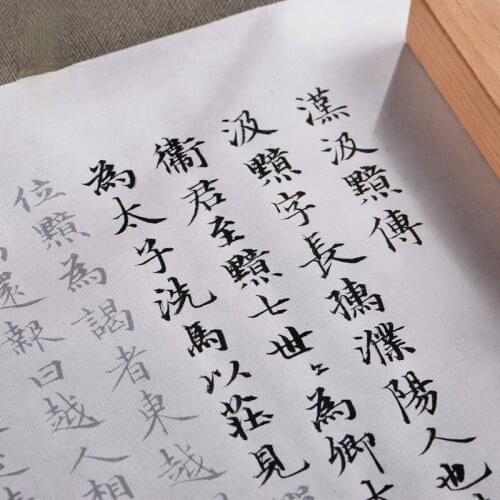 漢汲黯傳
汲黯字長孺濮陽人也
衛君至黯七世〻為卿大
為太子洗馬以莊見
位黯為謁者東越
還報曰越人相